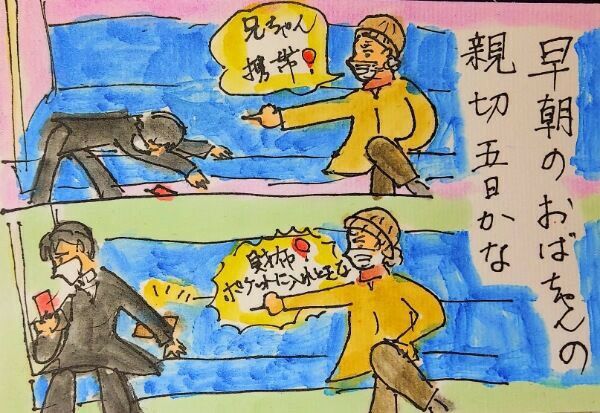 早朝のおばちゃんの
親切五日かな
兄ちゃん
携帯!
財布
ポケットに入れときな